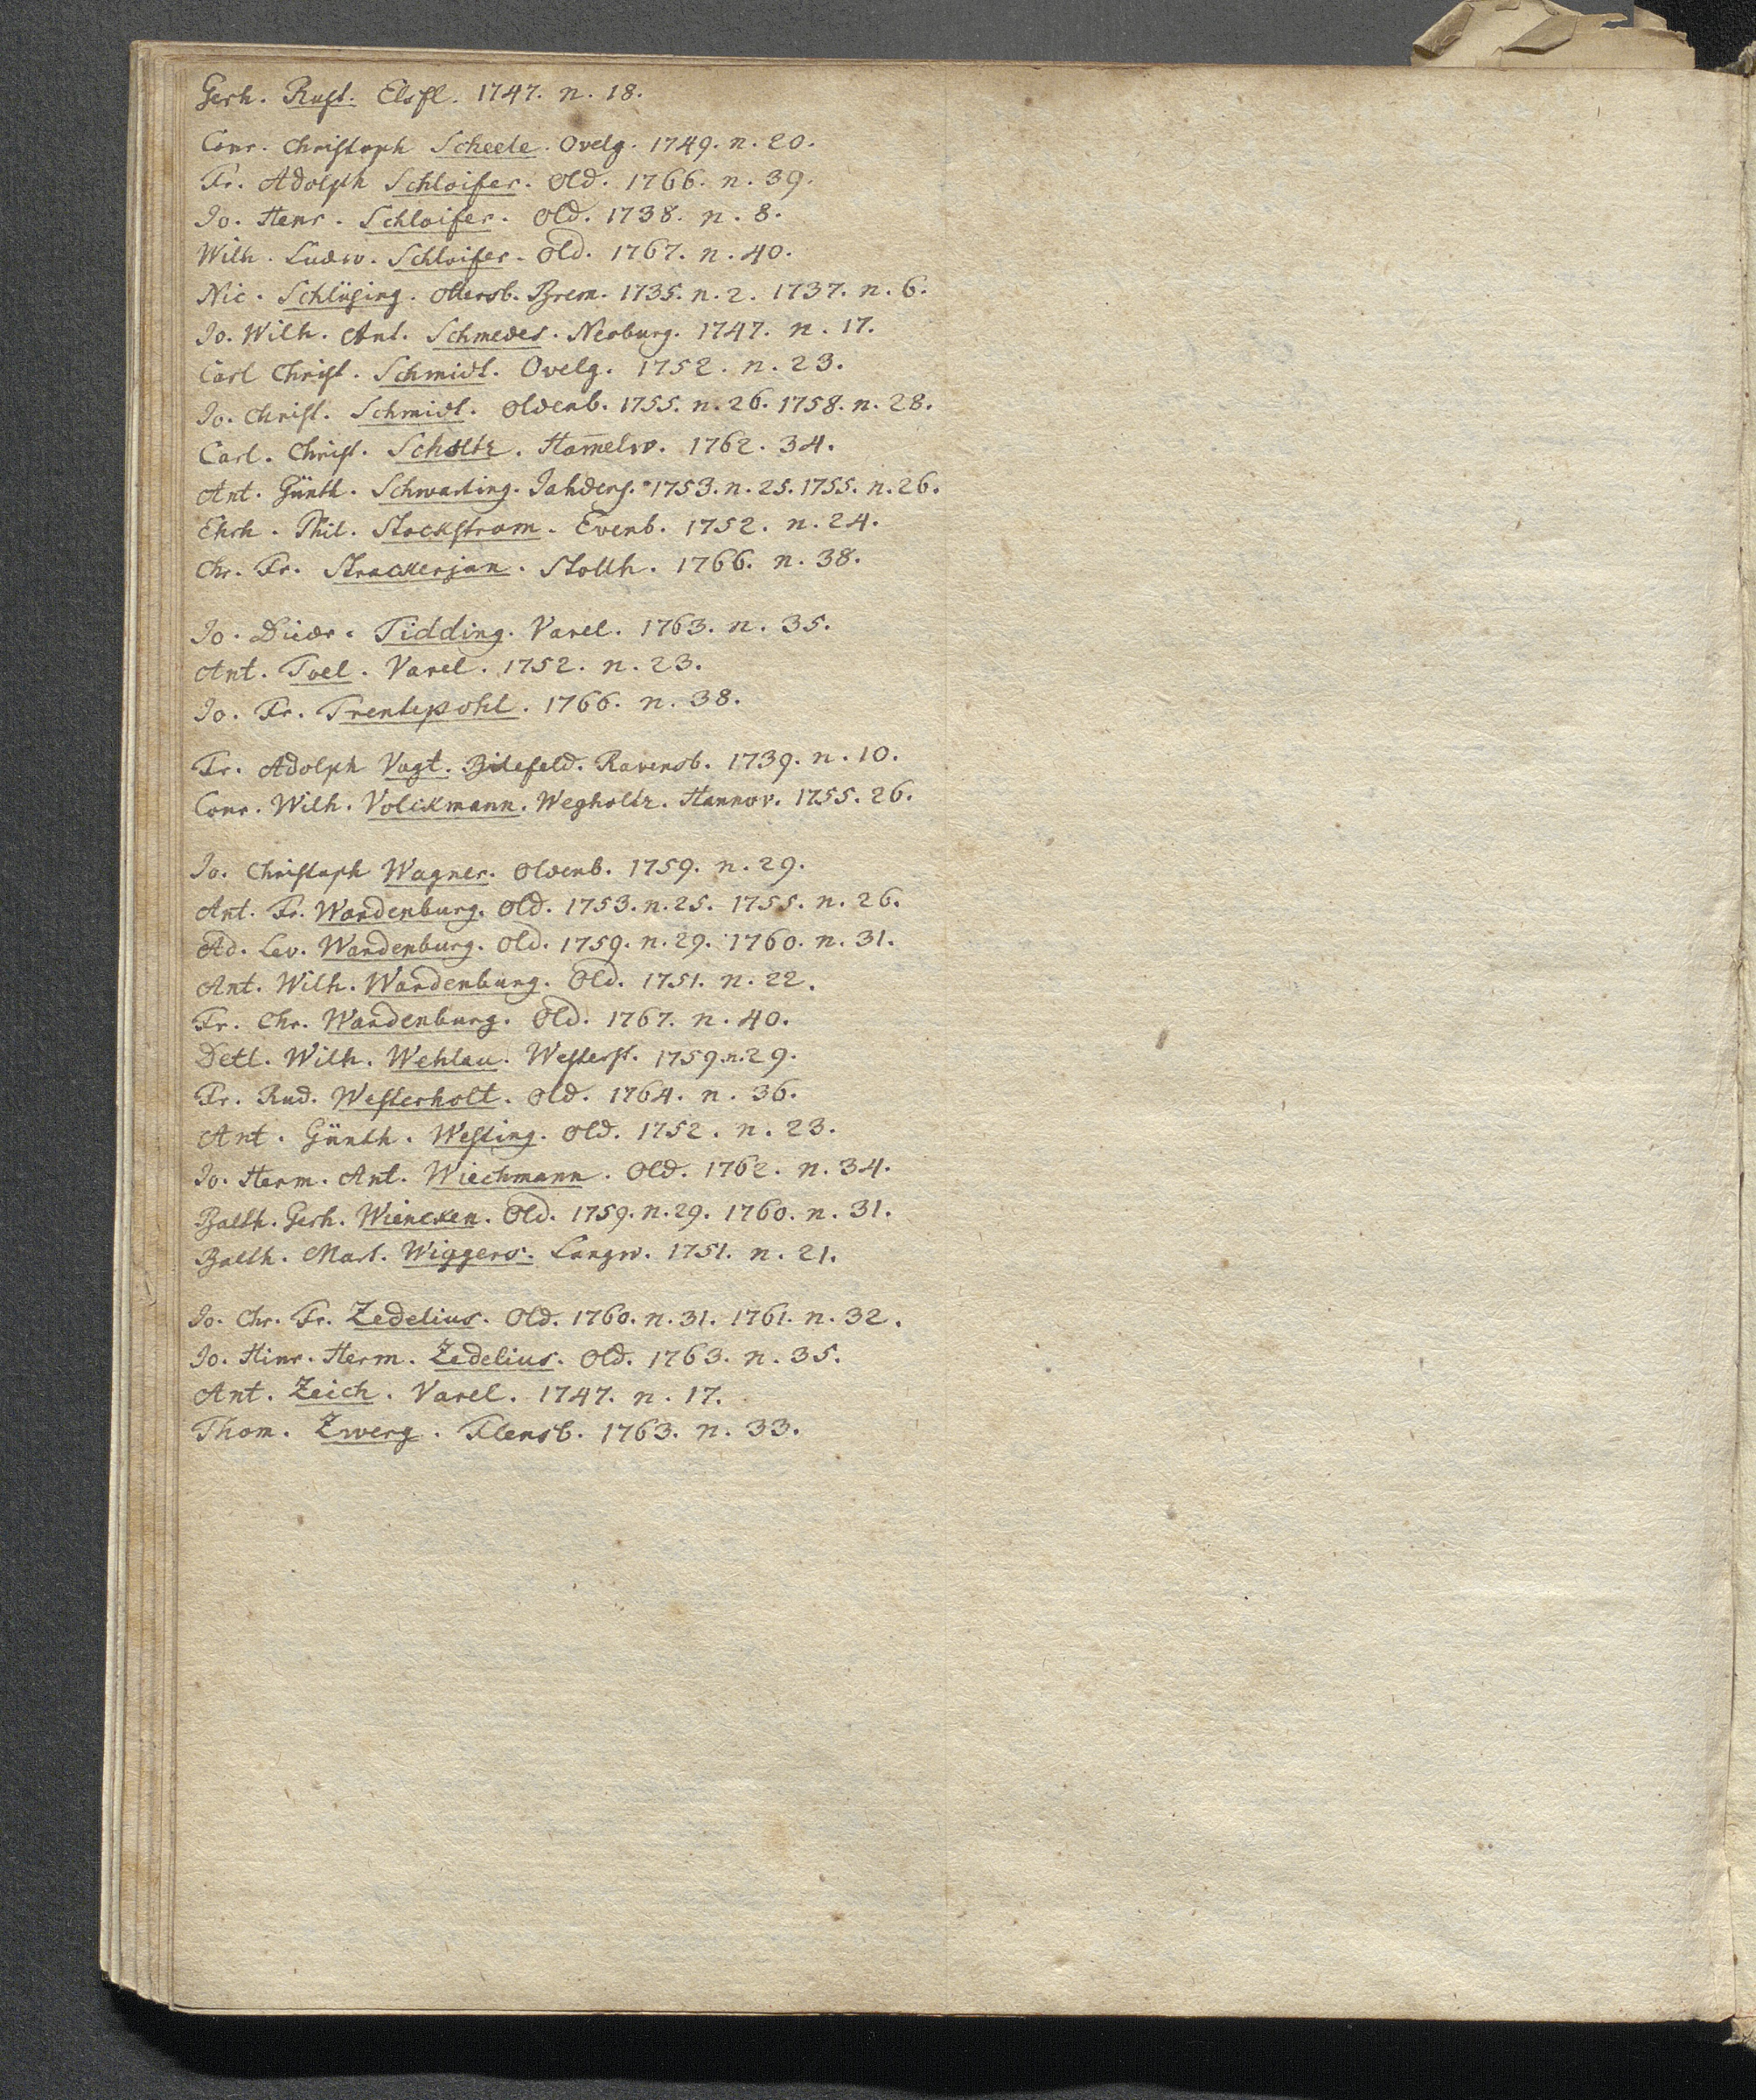 Gerh. Rust. Elsfl. 1747. n. 18.
Conr. Christoph Scheele. Ovelg. 1749. n. 20.
Fr. Adolph Schloifer. Old. 1766. n. 39.
Jo. Henr. Schloifer. Old. 1738. n. 8.
Wilh. Ludw. Schloifer. Old. 1767. n. 40.
Nic. Schlüsing. Ottersb. Brem. 1735. n. 2. 1737. n. 6.
Jo. Wilh. Ant. Schmedes. Neoburg. 1747. n. 17.
Carl Christ. Schmidt. Ovelg. 1752. n. 23.
Jo. Christ. Schmidt. Oldenb. 1755. n. 26. 1758. n. 28.
Carl. Christ. Scholtz. Ham̅elw. 1762. 34.
Ant. Günth. Schwarting. Jahders. 1753. n. 25. 1755. n. 26.
Ehrh. Phil. Stockstrom. Evenb. 1752. n. 24.
Chr. Fr. Strackerjan. Stollh. 1766. n. 38.
Jo. Diedr. Tidding. Varel. 1763. n. 35.
Ant. Toel. Varel. 1752. n. 23.
Jo. Fr. Trentepohl. 1766. n. 38.
Fr. Adolph Vagt. Bilefeld. Ravensb. 1739. n. 10.
Conr. Wilh. Volckmann. Wegholtz. Hannov. 1755. 26.
Jo. Christoph Wagner. Oldenb. 1759. n. 29.
Ant. Fr. Wardenburg. Old. 1753. n. 25. 1755. n. 26.
Ad. Lev. Wardenburg. Old. 1759. n. 29. 1760. n. 31.
Ant. Wilh. Wardenburg. Old. 1751. n. 22.
Fr. Chr. Wardenburg. Old. 1767. n. 40.
Detl. Wilh. Wehlau. Westerst. 1759. n. 29.
Fr. Rud. Westerholt. Old. 1764. n. 36.
Ant. Günth. Westing. Old. 1752. n. 23.
Jo. Herm. Ant. Wiechmann. Old. 1762. n. 34.
Balth. Gerh. Wiencken. Old. 1759. n. 29. 1760. n. 31.
Balth. Mart. Wiggers. Langw. 1751. n. 21.
Jo. Chr. Fr. Zedelius. Old. 1760. n. 31. 1761. n. 32.
Jo. Hinr. Herm. Zedelius. Old. 1763. n. 35.
Ant. Zeich. Varel. 1747. n. 17.
Thom. Zwerg. Flensb. 1763. n. 33.